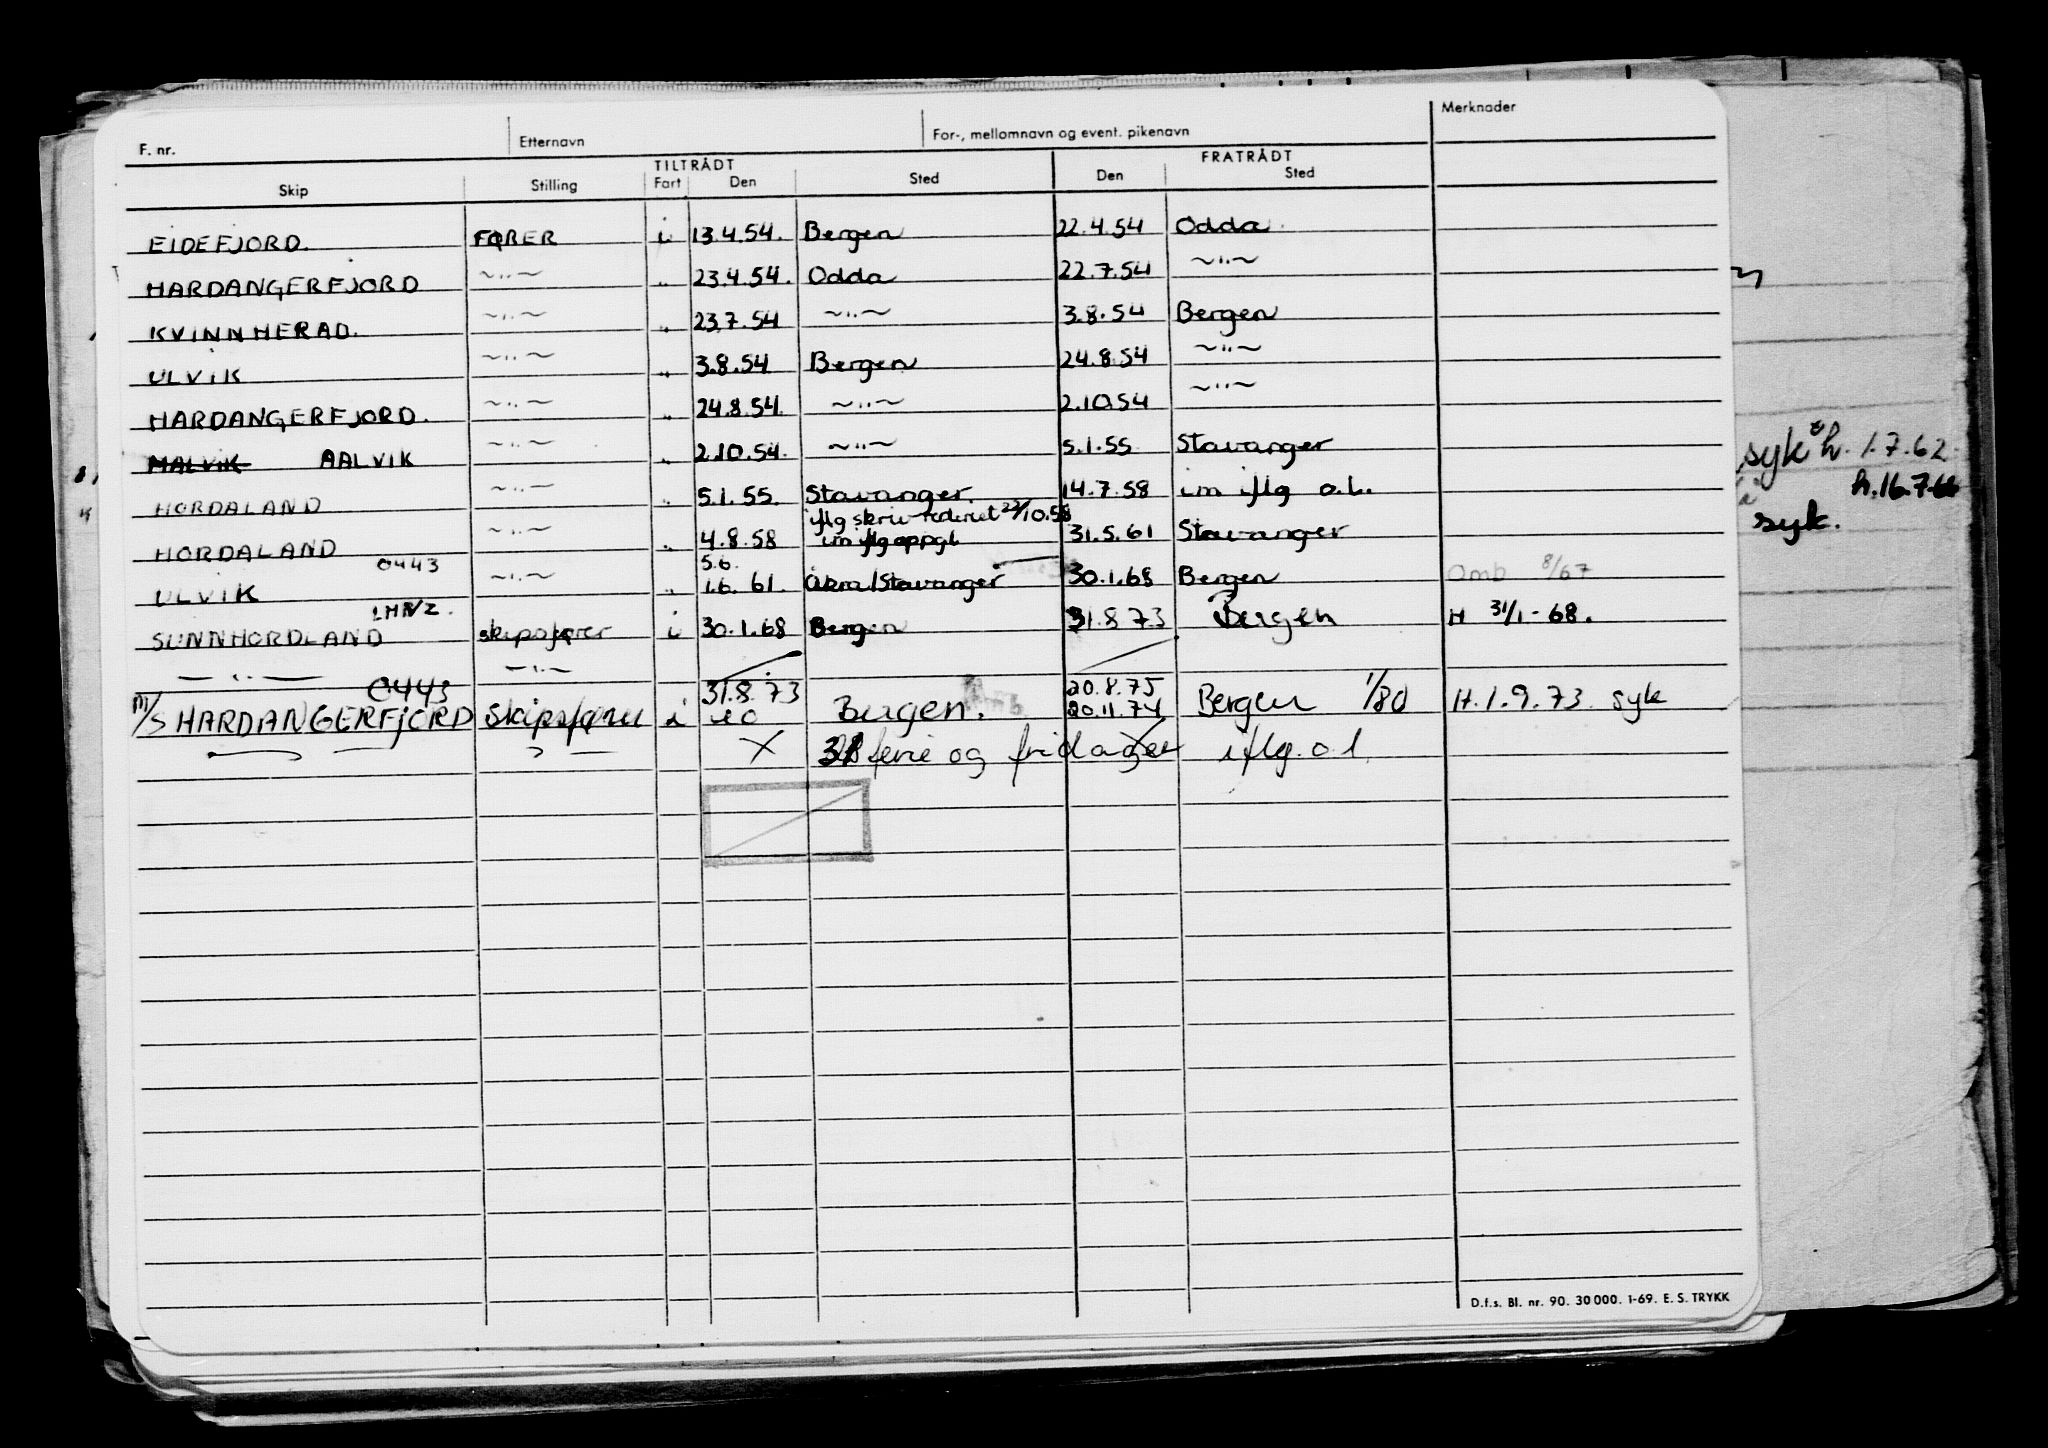 F. nr. Etternavn For-, mellomnavn og event. pikenavn Merknader
TILTRÅDT FRATRÅDT
Skip Stilling Fart Den Sted Den Sted
EIDEFJORD. FØRER i 13.4.54. Bergen 22.4.54 Odda
HARDANGERFJORD ~"~ " 23.4.54. Odda 22.7.54 ~"~
KVINNHERAD. ~"~ " 23.7.54 ~"~ 3.8.54 Bergen
ULVIK ~"~ " 3.8.54 Bergen 24.8.54 ~"~
HARDANGERFJORD. ~"~ " 24.8.54. ~"~ 2.10.54 ~"~
MALVIK AALVIK ~"~ " 2.10.54. ~"~ 5.1.55 Stavanger
HORDALAND ~"~ " 5.1.55. Stavanger. 14.7.58 im iflg o.l.
iflg skriv rederiet 22/10.58
HORDALAND ~"~ " 4.8.58 im iflg oppgl 31.5.61 Stavanger
0443 5.6.
ULVIK ~"~ " 1.6.61. Akra/Stavanger 30.1.68 Bergen Omb 8/67
LHNZ.
SUNNHORDLAND skipsfører i 30.1.68 Bergen 31.8.73 Bergen H 31/1-68.
—"— —"—
0443 31.8.73 20.8.75
M/S HARDANGERFJORD Skipsfører i Bergen. 20.11.74 Bergen 1/80 H.1.9.73 syk
X ferie og fridager iflg. o.l.
syk h. 1.7.62.
h.16.7.66
syk.
D.f.s. Bl. nr. 90. 30000. 1-69. E. S. TRYKK